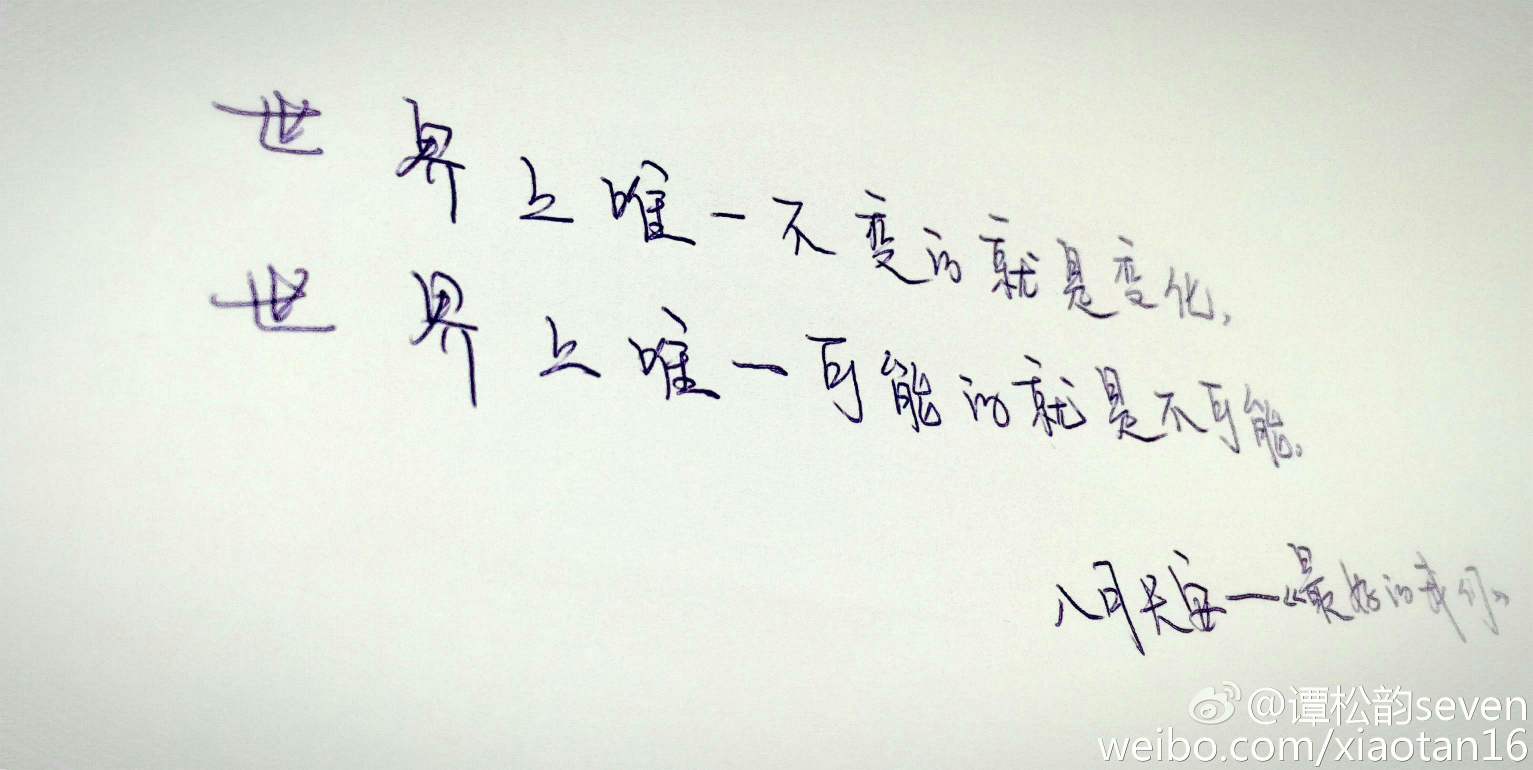 世界上唯一不变的就是变化,
世界上唯一可能的就是不可能。
八月长安—《最好的我们》
@谭松韵seven
weibo.com/xiaotan16